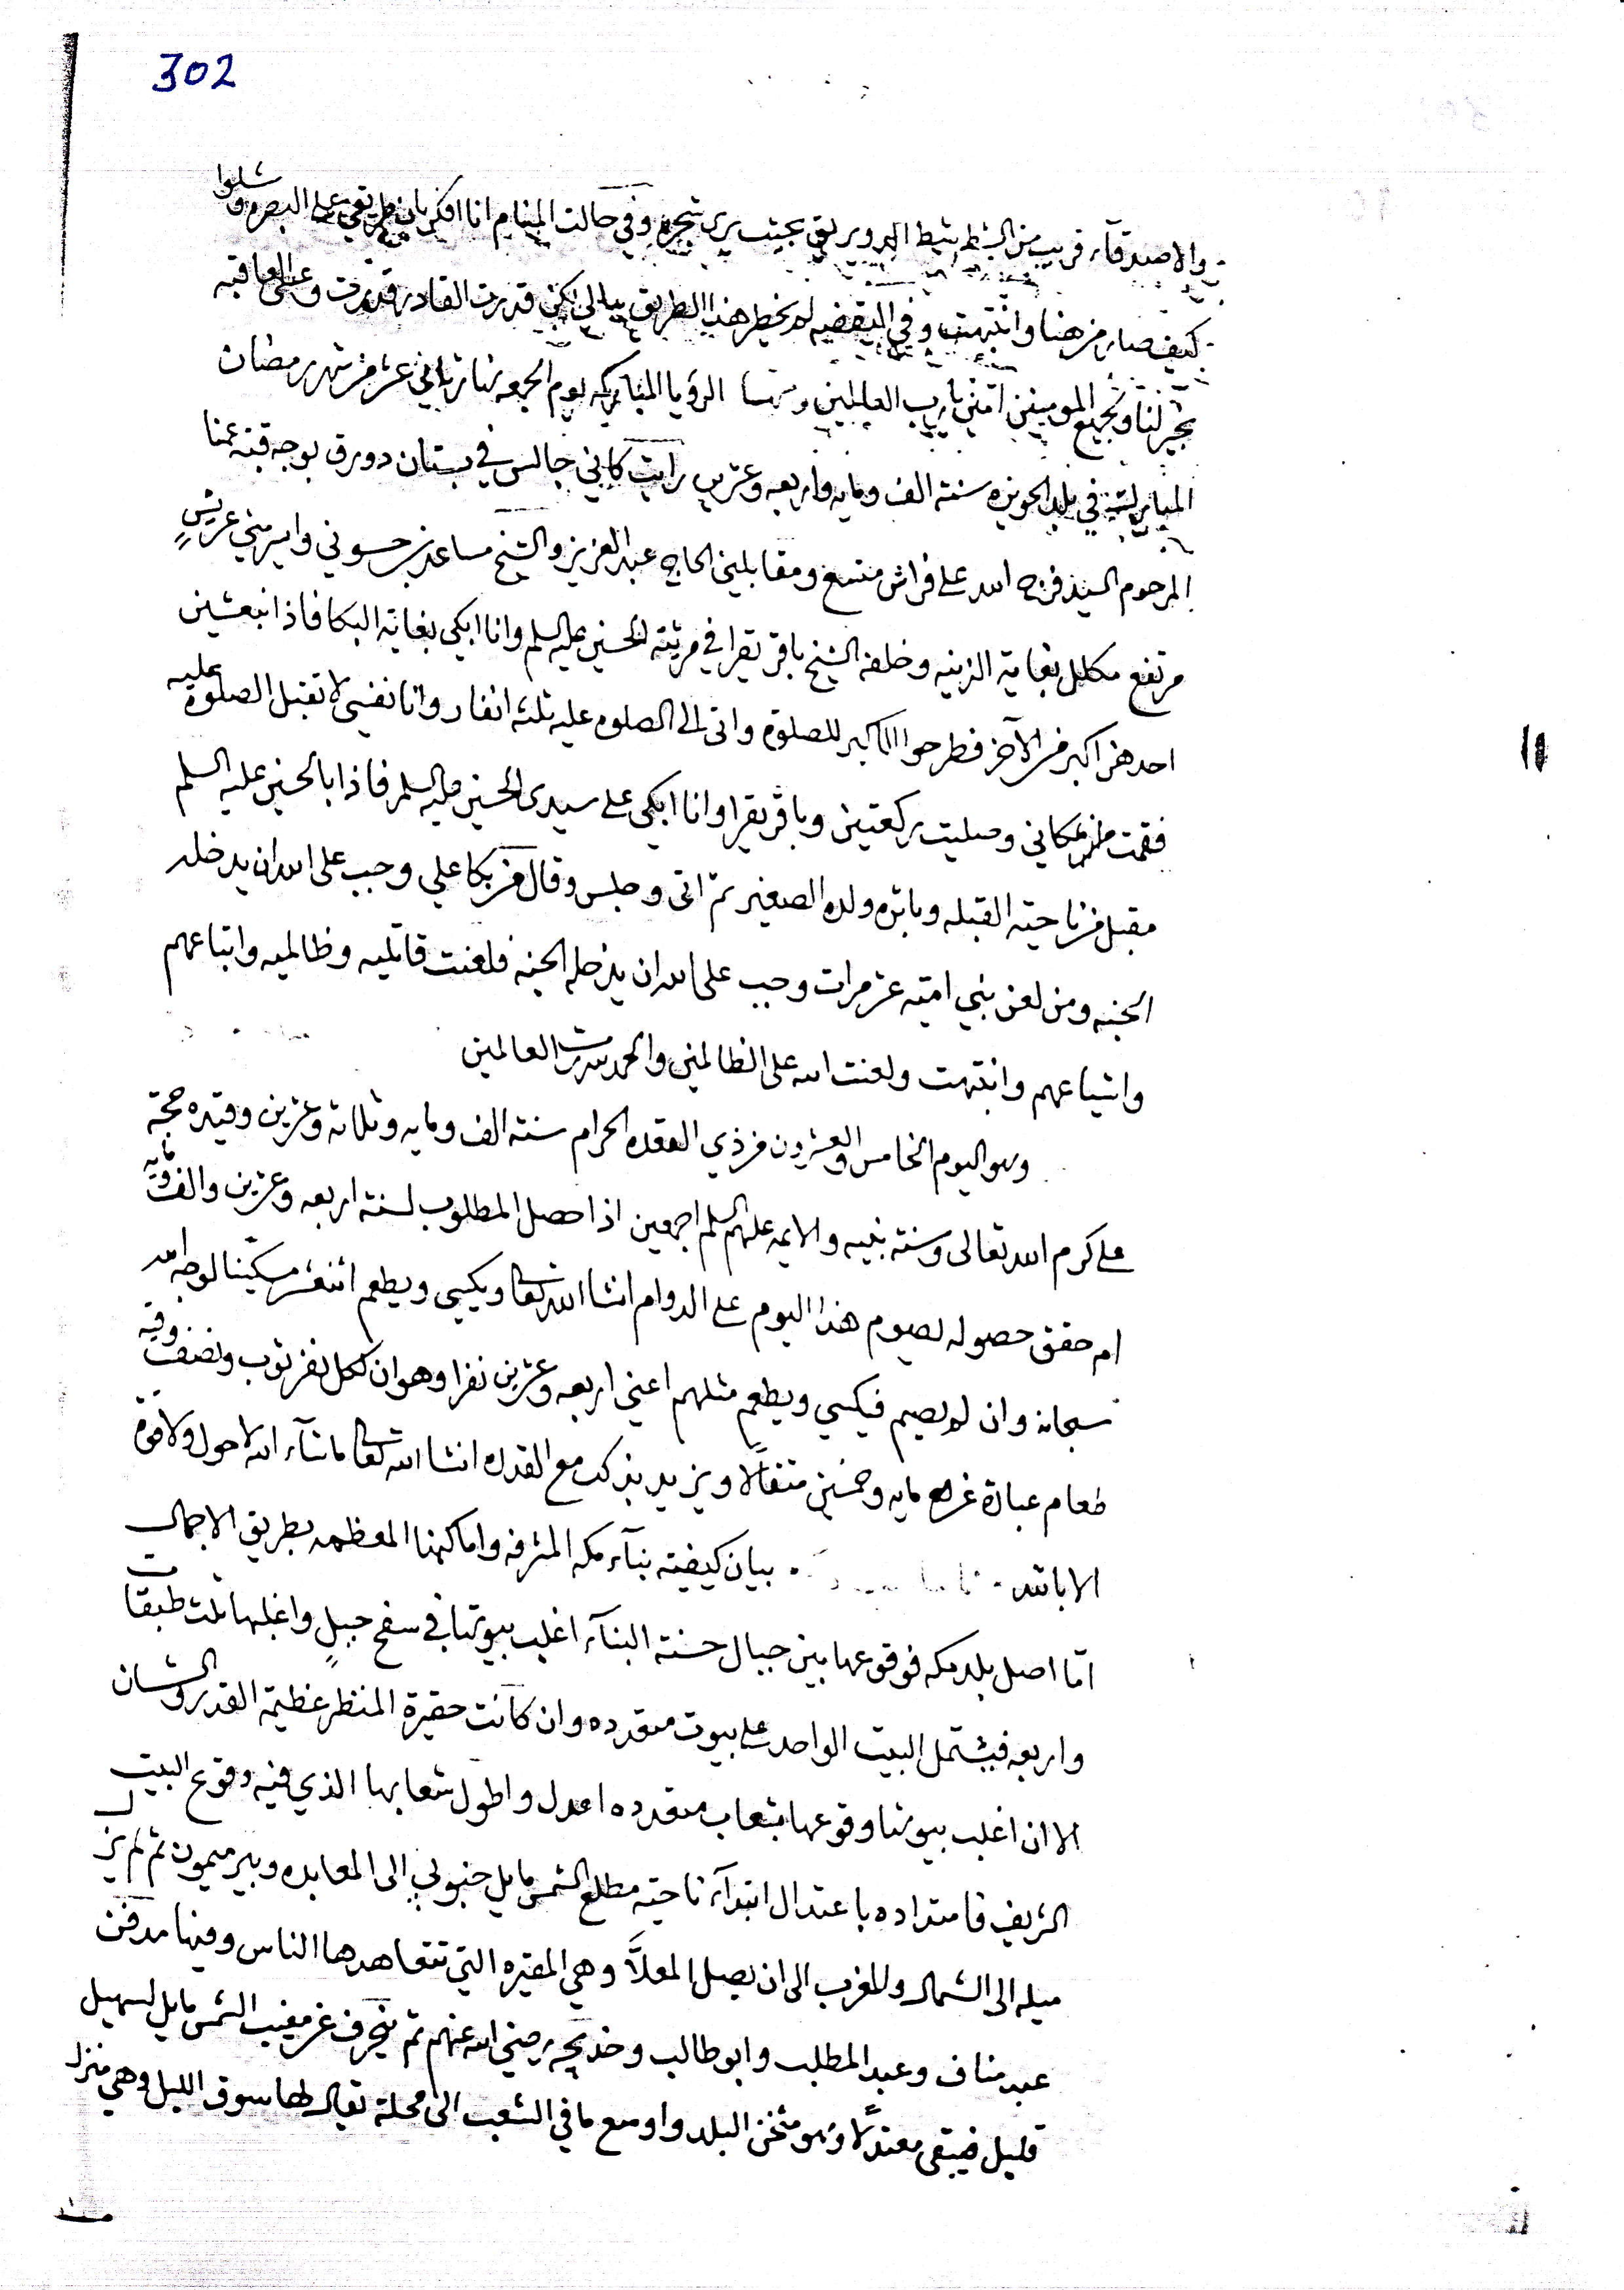 302
والاصدقآء قريب من الشط بشط الدويريق بحيث يرى شجره وفي حالت المنام انا افكر بان طريقي على البصره وشلوا
كيف صار من هنا وانتبهت وفي اليقضه لم يخطر هذا الطريق ببالي لكن قدرت القادر قدرت وعسى العاقبه
بخير لنا ولجميع المومنين امين يارب العالمين ومنها الرؤيا المباركه يوم الجمعه نهار ثاني عشر من شهر رمضان
المبارك في بلد الحويزه سنة الف ومايه واربعه وعشرين رايت كاني جالس في بستان دورق بوجه قبة عمنا
المرحوم السيد فرج الله على فراش متسع ومقابليني الحاج عبد العزيز والشيخ مساعد بن حسوني وايسر مني عريش
مرتفع مكلل بغاية الزينه وخلفه الشيخ باقر يقرا في مرثية الحسين عليه السلم وانا ابكي بغاية البكا فاذا نبعشين
احدهن اكبر من الآخر فطرحوا الاكبر للصلوة واتى الى الصلوه عليه ثلثه انفار وانا نفسي لا تقبل الصلوة عليه
فقمت من مكاني وصليت ركعتين وباقر يقرا وانا ابكي على سيدى الحسين عليه السلم فاذا بالحسين عليه السلم
مقبل من ناحية القبله وباثره ولده الصغير ثم اتى وجلس وقال من بكا علي وجب على الله ان يدخله
الجنه ومن لعن بني اميه عشر مرات وجب على الله ان يدخله الجنه فلعنت قاتليه وظالميه واتباعهم
واشياعهم وانتبهت ولعنت الله على الظالمين والحمد لله رب العالمين
وهو اليوم الخامس والعشرون من ذي القعده الحرام سنة الف ومايه وثلاثه وعشرين وقيده حجة
على كرم الله تعالى وسنة نبيه والايمه عليهم السلم اجمعين اذا حصل المطلوب لسنة اربعه وعشرين والف ومايه
ام حقق حصوله يصوم هذا اليوم على الدوام انشا الله تعالى ويكسي ويطعم اثنعشر مسكينا لوجه الله
سبحانه وان لم يصم فيكسي ويطعم مثلهم اعني اربعه وعشرين نفرا وهو ان لكل نفر ثوب ونصف وقيه
طعام عبارة عن مايه وخمسين مثقالا ويزيد بذلك مع القدره انشا الله تعالى ماشآء الله لا حول ولا قوة
الا بالله بيان كيفية بنآء مكه المشرفه واماكنها المعظمه بطريق الاجمال
اما اصل بلد مكه فوقوعها بين جبال حسنة البنآء اغلب بيوتها في سفح جبل واغلبها ثلث طبقات
واربعه فيشتمل البيت الواحد على بيوت متعدده وان كانت حقيرة المنظر عظيمة القدر والشان
الا ان اغلب بيوتها وقوعها بشعاب متعدده اعدل واطول شعابها الذي فيه وقوع البيت
الشريف فامتداده باعتدال ابتدآء ناحية مطلع الشمس مايل جنوبي الى المعابده وبير ميمون ثم لم يزل
ميله الى الشمال وللغرب الى ان يصل المعلاَّ وهي المقبره التي تتعاهدها الناس وفيها مدفن
عبد مناف وعبد المطلب وابو طالب وخديجه رضي الله عنهم ثم ينحرف عن مغيب الشمس مايل لسهيل
قليل فيبقى معتدلا وهو مثخن البلد واوسع ما في الشعب الى محلة يقال لها سوق الليل وهي منزل